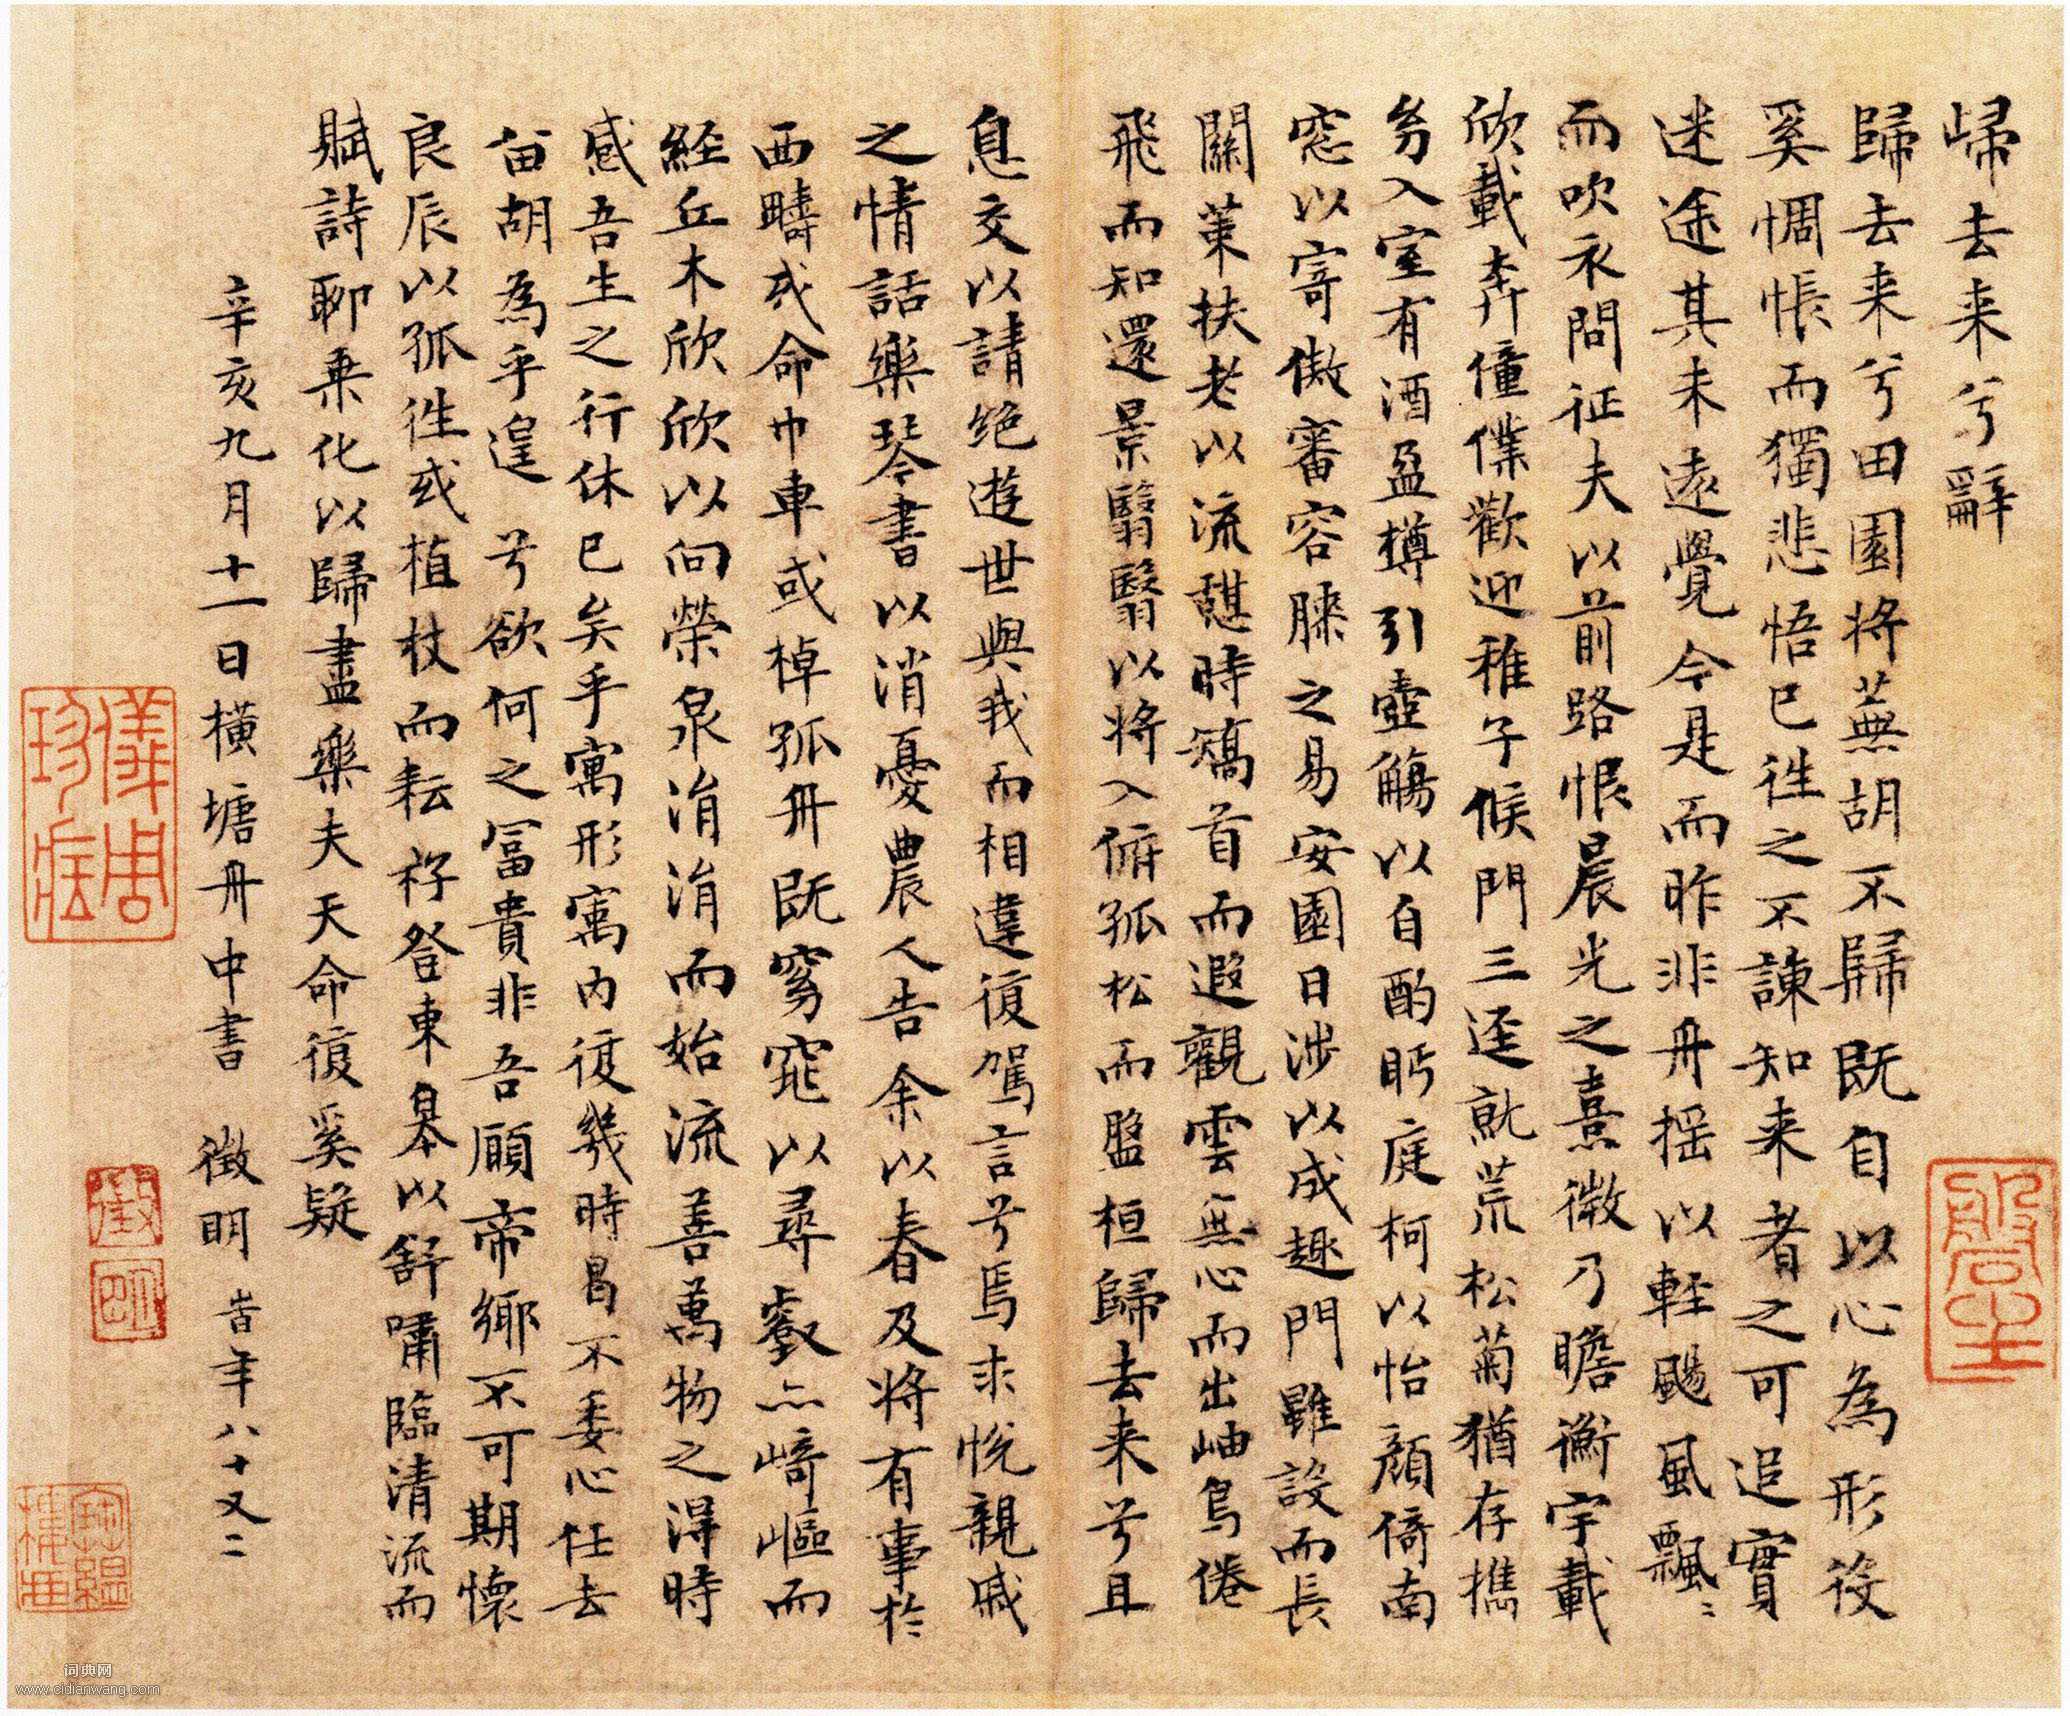 歸去来兮辭
歸去来兮田園将蕪胡不歸既自以心為形役
奚惆悵而獨悲悟已往之不諫知来者之可追實
迷途其未遠覺今是而昨非舟揺以輕颺風飄〻
而吹衣問征夫以前路恨晨光之熹微乃瞻衡宇載
欣載奔僮僕歡迎稚子候門三逕就荒松菊猶存携
㓜入室有酒盈樽引壺觴以自酌眄庭柯以怡顏倚南
窓以寄傲審容膝之易安園日涉以成趣門雖設而長
關策扶老以流憇時矯首而遐觀雲無心而出岫鳥倦
飛而知還景翳翳以将入俯孤松而盤桓歸去来兮且
息交以請絶遊世與我而相違復駕言兮焉求悅親戚
之情話樂琴書以消憂農人告余以春及将有事於
西疇或命巾車或棹孤舟既窈窕以尋壑亦崎嶇而
經丘木欣欣以向榮泉涓涓而始流善萬物之得時
感吾生之行休已矣乎寓形寓内復幾時曷不委心任去
留胡為乎遑兮欲何之冨貴非吾願帝鄉不可期懷
良辰以孤往或植杖而耘耔登東皋以舒嘯臨清流而
賦詩聊乗化以歸盡樂夫天命復奚疑
辛亥九月十一日横塘舟中書 徵明 旹年八十又二
徵
明
词典网
www.cidianwang.com